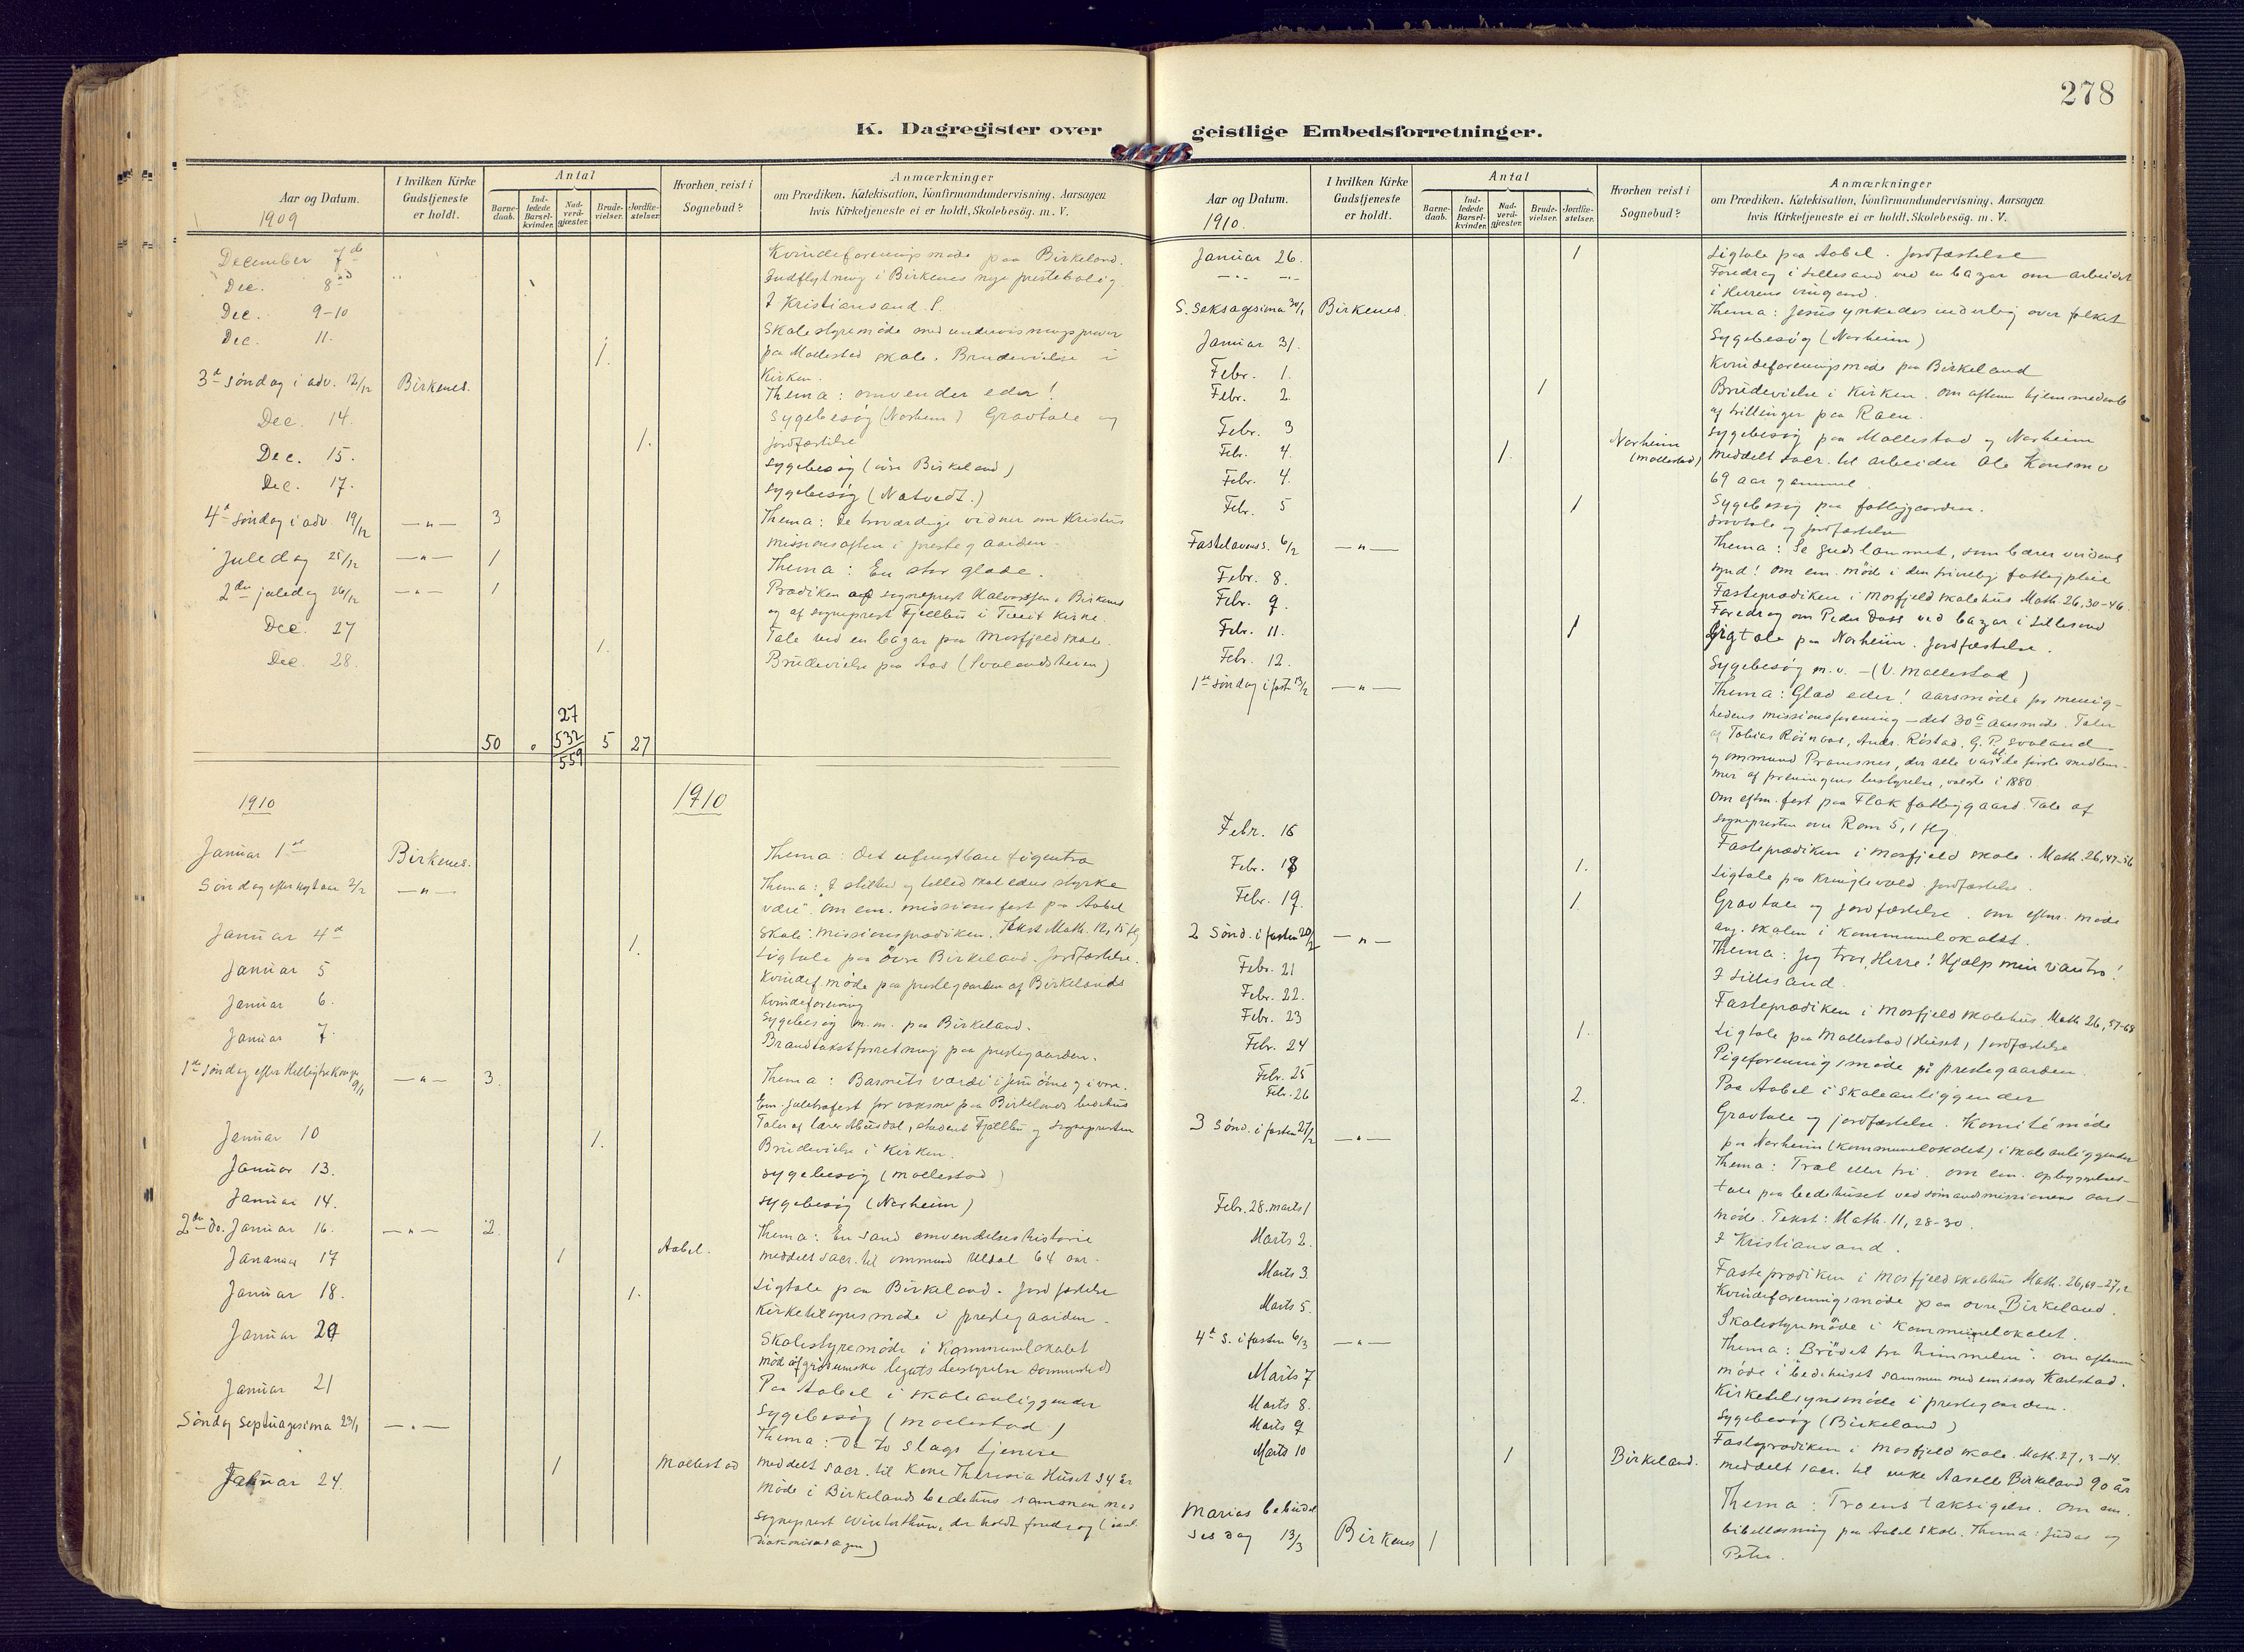 278
K. Dagregister over
geistlige Embedsforretninger.
Aar og Datum.
1909
I hvilken Kirke Gudstjeneste er holdt.
Antal
Barne-daab.
Ind-ledede Barsel-kvinder.
Nad-verd-gjæster.
Brude-vielser.
Jordfæ-stelser.
Hvorhen reist i Sognebud?
Anmærkninger
om Prædiken, Katekisation, Konfirmandundervisning. Aarsagen
hvis Kirketjeneste ei er holdt, Skolebesög. m. V.
December 7de Kvindeforeningsmøde paa Birkeland.
Dec. 8de Indflytning i Birkenes nye prestebolig.
Dec. 9-10 I Kristiansand S.
Dec. 11. Skolestyremøde med undervisningsprøver
1. paa Mollestad skole. Brudevielse i
Kirken.
3de søndag i adv. 12/12 Birkenes. Thema: omvender eder!
Dec. 14. Sygebesøg (Norheim) Gravtale og
1. jordfæstelse
Dec. 15. Sygebesøg (øvre Birkeland)
Dec. 17. Sygebesøg (Natvedt.)
4de søndag i adv. 19/12 —"— 3 Thema: De troværdige vidner om Kristus
missionsaften i prestegaarden.
Juledag 25/12 —"— 1 Thema: En stor glæde.
2den juledag 26/12 —"— 1 Prædiken af sogneprest Halvorssen i Birkenes
og af sogneprest Fjellbu i Tveit Kirke.
Dec. 27 Tale ved en bazar paa Mosfjeld skole.
Dec. 28. 1. Brudevielse paa Aas (Svalandsheien)
27
50 0 532 5 27
559
1910
1910
Januar 1ste Birkenes. Thema: Det ufrugtbare figentræ
Søndag efter nytaar 2/1 —"— Thema: I stilhed og tillid skal eders styrke
være". Om em. missionsfest paa Aabel
skole: missionsprædiken. Tekst Math. 12, 15 flg
Januar 4de 1. Ligtale paa øvre Birkeland. Jordfæstelse.
Januar 5 Kvindef. møde paa prestegaarden af Birkelands
Kvindeforening
Januar 6. Sygebesøg m.m. paa Birkeland.
Januar 7 Brandtakstforretning paa prestegaarden.
1ste søndag efter Helligtrekonger 9/1 —"— 3. Thema: Barnets værdi i Jesu øine og i vore.
Em. juletræfest for voksne paa Birkelands bedehus
Taler af lærer, student Fjellbu og sognepresten
Januar 10 1. Brudevielse i Kirken.
Januar 13. Sygebesøg (Mollestad)
Januar 14. Sygebesøg (Norheim)
2den Do. Januar 16. —"— 2. Thema: En sand omvendelseshistorie
Januar 17 1 Aabel. meddelt sacr. til Ommund Uldal 64 aar.
Januar 18. 1. Ligtale paa Birkeland. Jordfæstelse
Kirketilsynsmøde i prestegaarden.
Januar 20 Skolestyremøde i Kommunelokalet
Møde af legats bestyrelse sammesteds
Januar 21 Paa Aabel i skoleanliggender
Sygebesøg (Mollestad)
Søndag Septuagesima 23/1 —"— Thema: De to slags tjenere
Januar 24. 1 Mollestad meddelt sacr. til Kone Theresia Huset 34 år
Møde i Birkelands bedehus sammen med
sogneprest Winterthun, der holdt foredrag (
diakonisedagen)
Aar og Datum.
1910.
I hvilken Kirke Gudstjeneste er holdt.
Antal
Barne-daab.
Ind-ledede Barsel-kvinder.
Nad-verd-gjæster.
Brude-vielser.
Jordfæ-stelser.
Hvorhen reist i Sognebud?
Anmærkninger
om Prædiken, Katekisation, Konfirmandundervisning. Aarsagen
hvis Kirketjeneste ei er holdt, Skolebesög. m. V.
Januar 26. 1 Ligtale paa Aabel. Jordfæstelse
—"— Foredrag i Lillesand ved en bazar om arbeidet
i Herrens vingaard.
S. Seksagesima 30/1 Birkenes. Thema: Jesus ynkedes inderlig over folket
Januar 31. Sygebesøg (Norheim)
Febr. 1. Kvindeforeningsmøde paa Birkeland
Febr. 2. 1 Brudevielse i Kirken. Om aftenen hjemmedaab
af trillinger paa Raen.
Febr. 3 Sygebesøg paa Mollestad og Norheim
Febr. 4. 1. Norheim (Mollestad) meddelt sacr. til arbeider Ole Konsmo
69 aar gammel.
Febr. 4. Sygebesøg paa fattiggaarden.
Febr. 5 1 Gravtale og jordfæstelse
Fastelavenss. 6/2 —"— Thema: Se Guds lammet, som bærer verdens
synd! Om em. møde i den frivillige fattigpleie
Febr. 8. Fasteprædiken i Mosfjeld skolehus Math. 26, 30-46.
Febr. 9. Foredrag om Peder Dass ved bazar i Lillesand
Febr. 11. 1 Ligtale paa Norheim. Jordfæstelse.
Febr. 12. Sygebesøg m.v. —(V. Mollestad)
1ste søndag i faste 13/2 —"— Thema: Glæd eder! Aarsmøde for menig-
hedens missionsforening — det 30te aarsmøde. Taler
af Tobias, Andr. Rostad, G. P. Svaland
og Ommund, der alle var bl. de første medlem-
mer af foreningens bestyrelse, valgte i 1880
Om eftm. fest paa Flak fattiggaard. Tale af
sognepresten over Rom 5, 1 flg.
Febr. 16 Fasteprædiken i Mosfjeld skole. Math. 26, 47-56
Febr. 18 1. Ligtale paa Kringlevold. Jordfæstelse.
Febr. 19. 1. Gravtale og jordfæstelse. Om eftm. møde
ang. skolen i Kommunelokalet.
2 Sønd. i fasten 20/2 —"— Thema: Jeg tror, Herre! Hjælp min vantro!
Febr. 21 I Lillesand.
Febr. 22.
Febr. 23 Fasteprædiken i Mosfjeld skolehus. Math 26, 57-68
Febr. 24 1. Ligtale paa Mollestad (Huset) jordfæstelse
Febr. 25 Pigeforeningsmøde på prestegaarden.
Febr. 26 Paa Aabel i skoleanliggender
2. Gravtale og jordfæstelse. Komitémøde
paa Norheim (Kommunelokalet) i skoleanliggender
3 Sønd. i fasten 27/2 —"— Thema: Træl eller fri. Om em. opbyggelses-
tale paa bedehuset ved sømandsmissionens aars-
møde. Tekst: Math. 11, 28-30.
Febr. 28. marts 1 I Kristiansand.
Marts 2. Fasteprædiken i Mosfjeld skolehus Math. 26, 69-27, 2
Marts 3. Kvindeforeningsmøde paa øvre Birkeland.
Marts 5. Skolestyremøde i Kommunelokalet.
4de S. i fasten 6/3 —"— Thema: Brødet fra himmelen. Om aftenen
møde i bedehuset sammen med emissær Karlstad.
Marts 7 Kirketilsynsmøde i prestegaarden.
Marts 8. Sygebesøg (Birkeland)
Marts 9 Fasteprædiken i Mosfjeld skole. Math. 27, 3-14.
Marts 10 1 Birkeland. meddelt sacr. til enke Aaselle Birkeland 90 år
Marias bebudel Thema: Troens taksigelse. Om em.
ses dag 13/3 Birkenes 1 bibellæsning paa Aabel skole. Thema: Judas og
Peter.